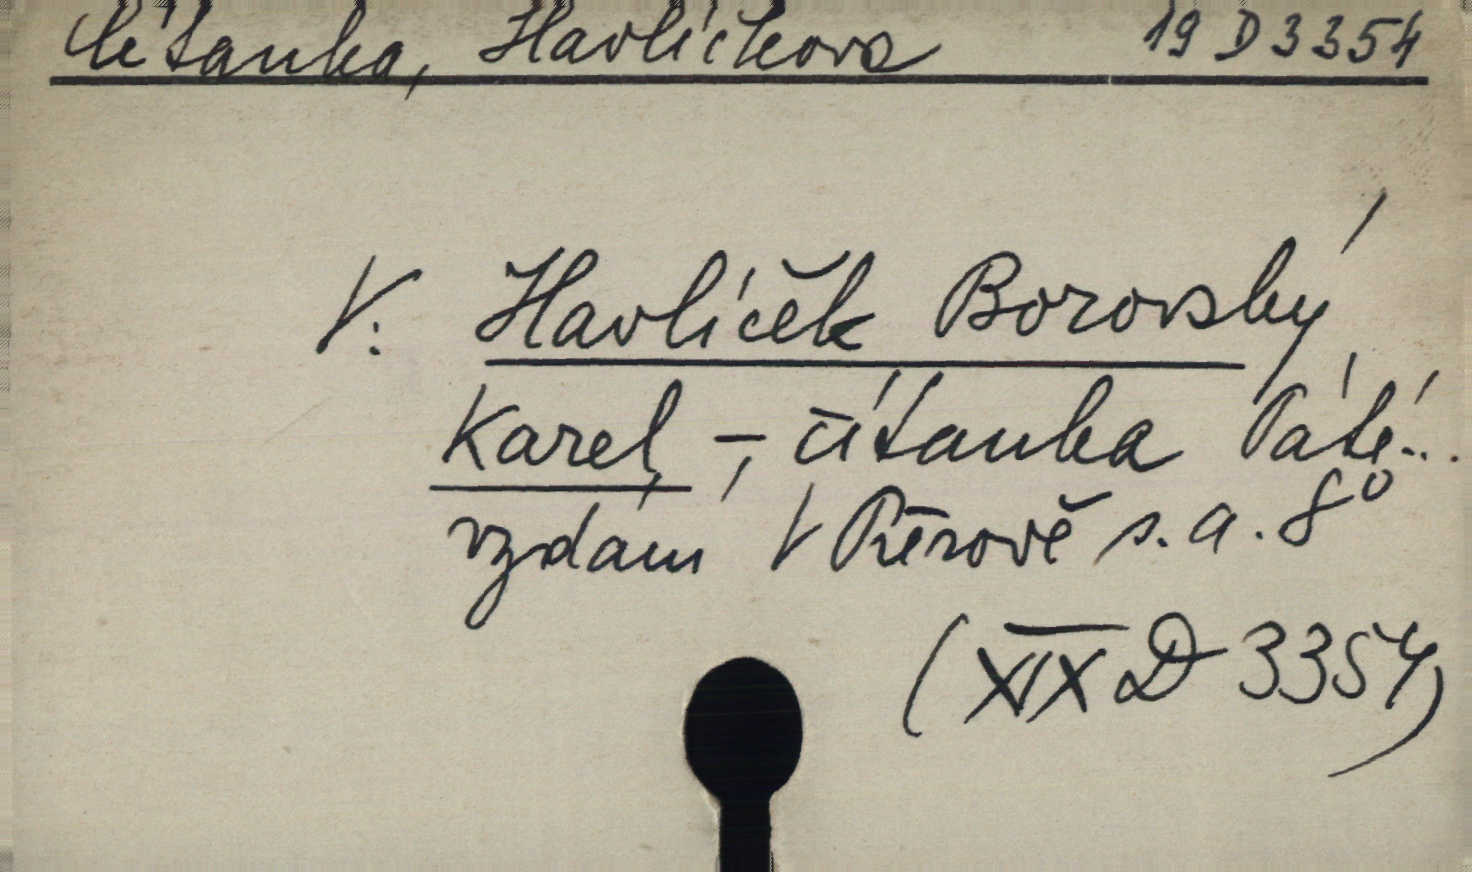 Čítanka, Havlíčkova 19 D 3354
V. Havlíček Borovský
Karel, -, čítanka Páté...
vydání V Přerově s. a. 8°
(XIX D 3354)